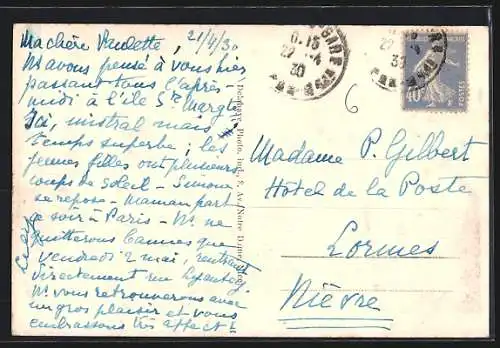 21/4/30
Ma chère Paulette,
Ns avons pensé à vous hier
passant tous l'après-
midi à l'île Ste Margte
Ici, mistral mais
temps superbe; les
jeunes filles ont plusieurs
coups de soleil - Simone
se repose - Maman part
ce soir - Paris - Ns ne
quitterons Cannes que
vendredi 2 mai, rentrant
directement
Ns vous retrouverons avec
un gros plaisir et vous
embrassons très affectt
Photo. 5, Av. Notre Dame
6.15
22-4
30
22
4
6
40c
POSTES
Madame P. Gelbert
Hôtel de la Poste
Lormes
Nièvre